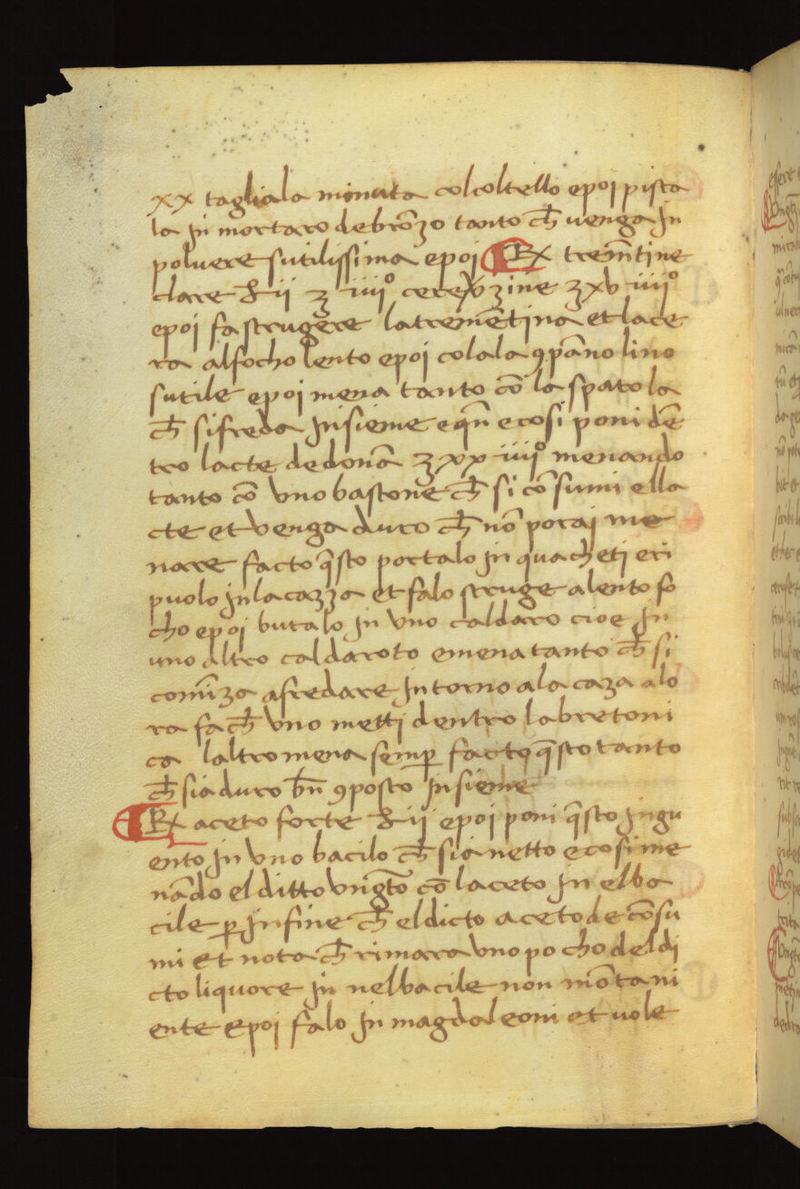 xx tagliala minuta col coltello epoj pista
la jn mortaro de brōzo tanto ch̄ uenga jn
poluere sutilissima epoj ℞ trem̄tine
clare ℔ ij ʒ iiijº cere ʒ xv iiijº
epoj fa strugere la tremētina et la ce
ra al focho lento epoj colala ꝯ pāno lino
sutile epoj mena tanto cō la spatola
ch̄ si freda jnsieme e qn̄ e cosi poni dē
tro lacte de donā ʒ xx iiijº menando
tanto cō vno bastone ch̄ si cōsumi el la
cte et venga duro ch̄ nō poraj me
nare facto q̄sto portalo in qua
puolo jn la cazza et falo struge a lento fo
cho epoj butalo jn vno caldaro cioe jn
uno altro caldaroto e mena tanto ch̄ si
comīza a fredare jntorno a la caza alo
ra fa ch̄ vno metti dentro la bretoni
ca laltro mena semꝑ facto q̄sto tanto
ch̄ sia duro bn̄ ꝯposto jnsieme
℞ aceto forte ℔ ij epoj poni q̄sto jngu
ento jn vno bacilo ch̄ sia netto e cosi me
nādo el ditto vngt̄o cō laceto jn el ba
cile ꝑ jnfine ch̄ el dicto aceto de cōsu
mi et nota ch̄ rimara vno pocho del di
cto liquore jn nel bacile non mōta ni
ente epoj falo jn magdaleoni et uole